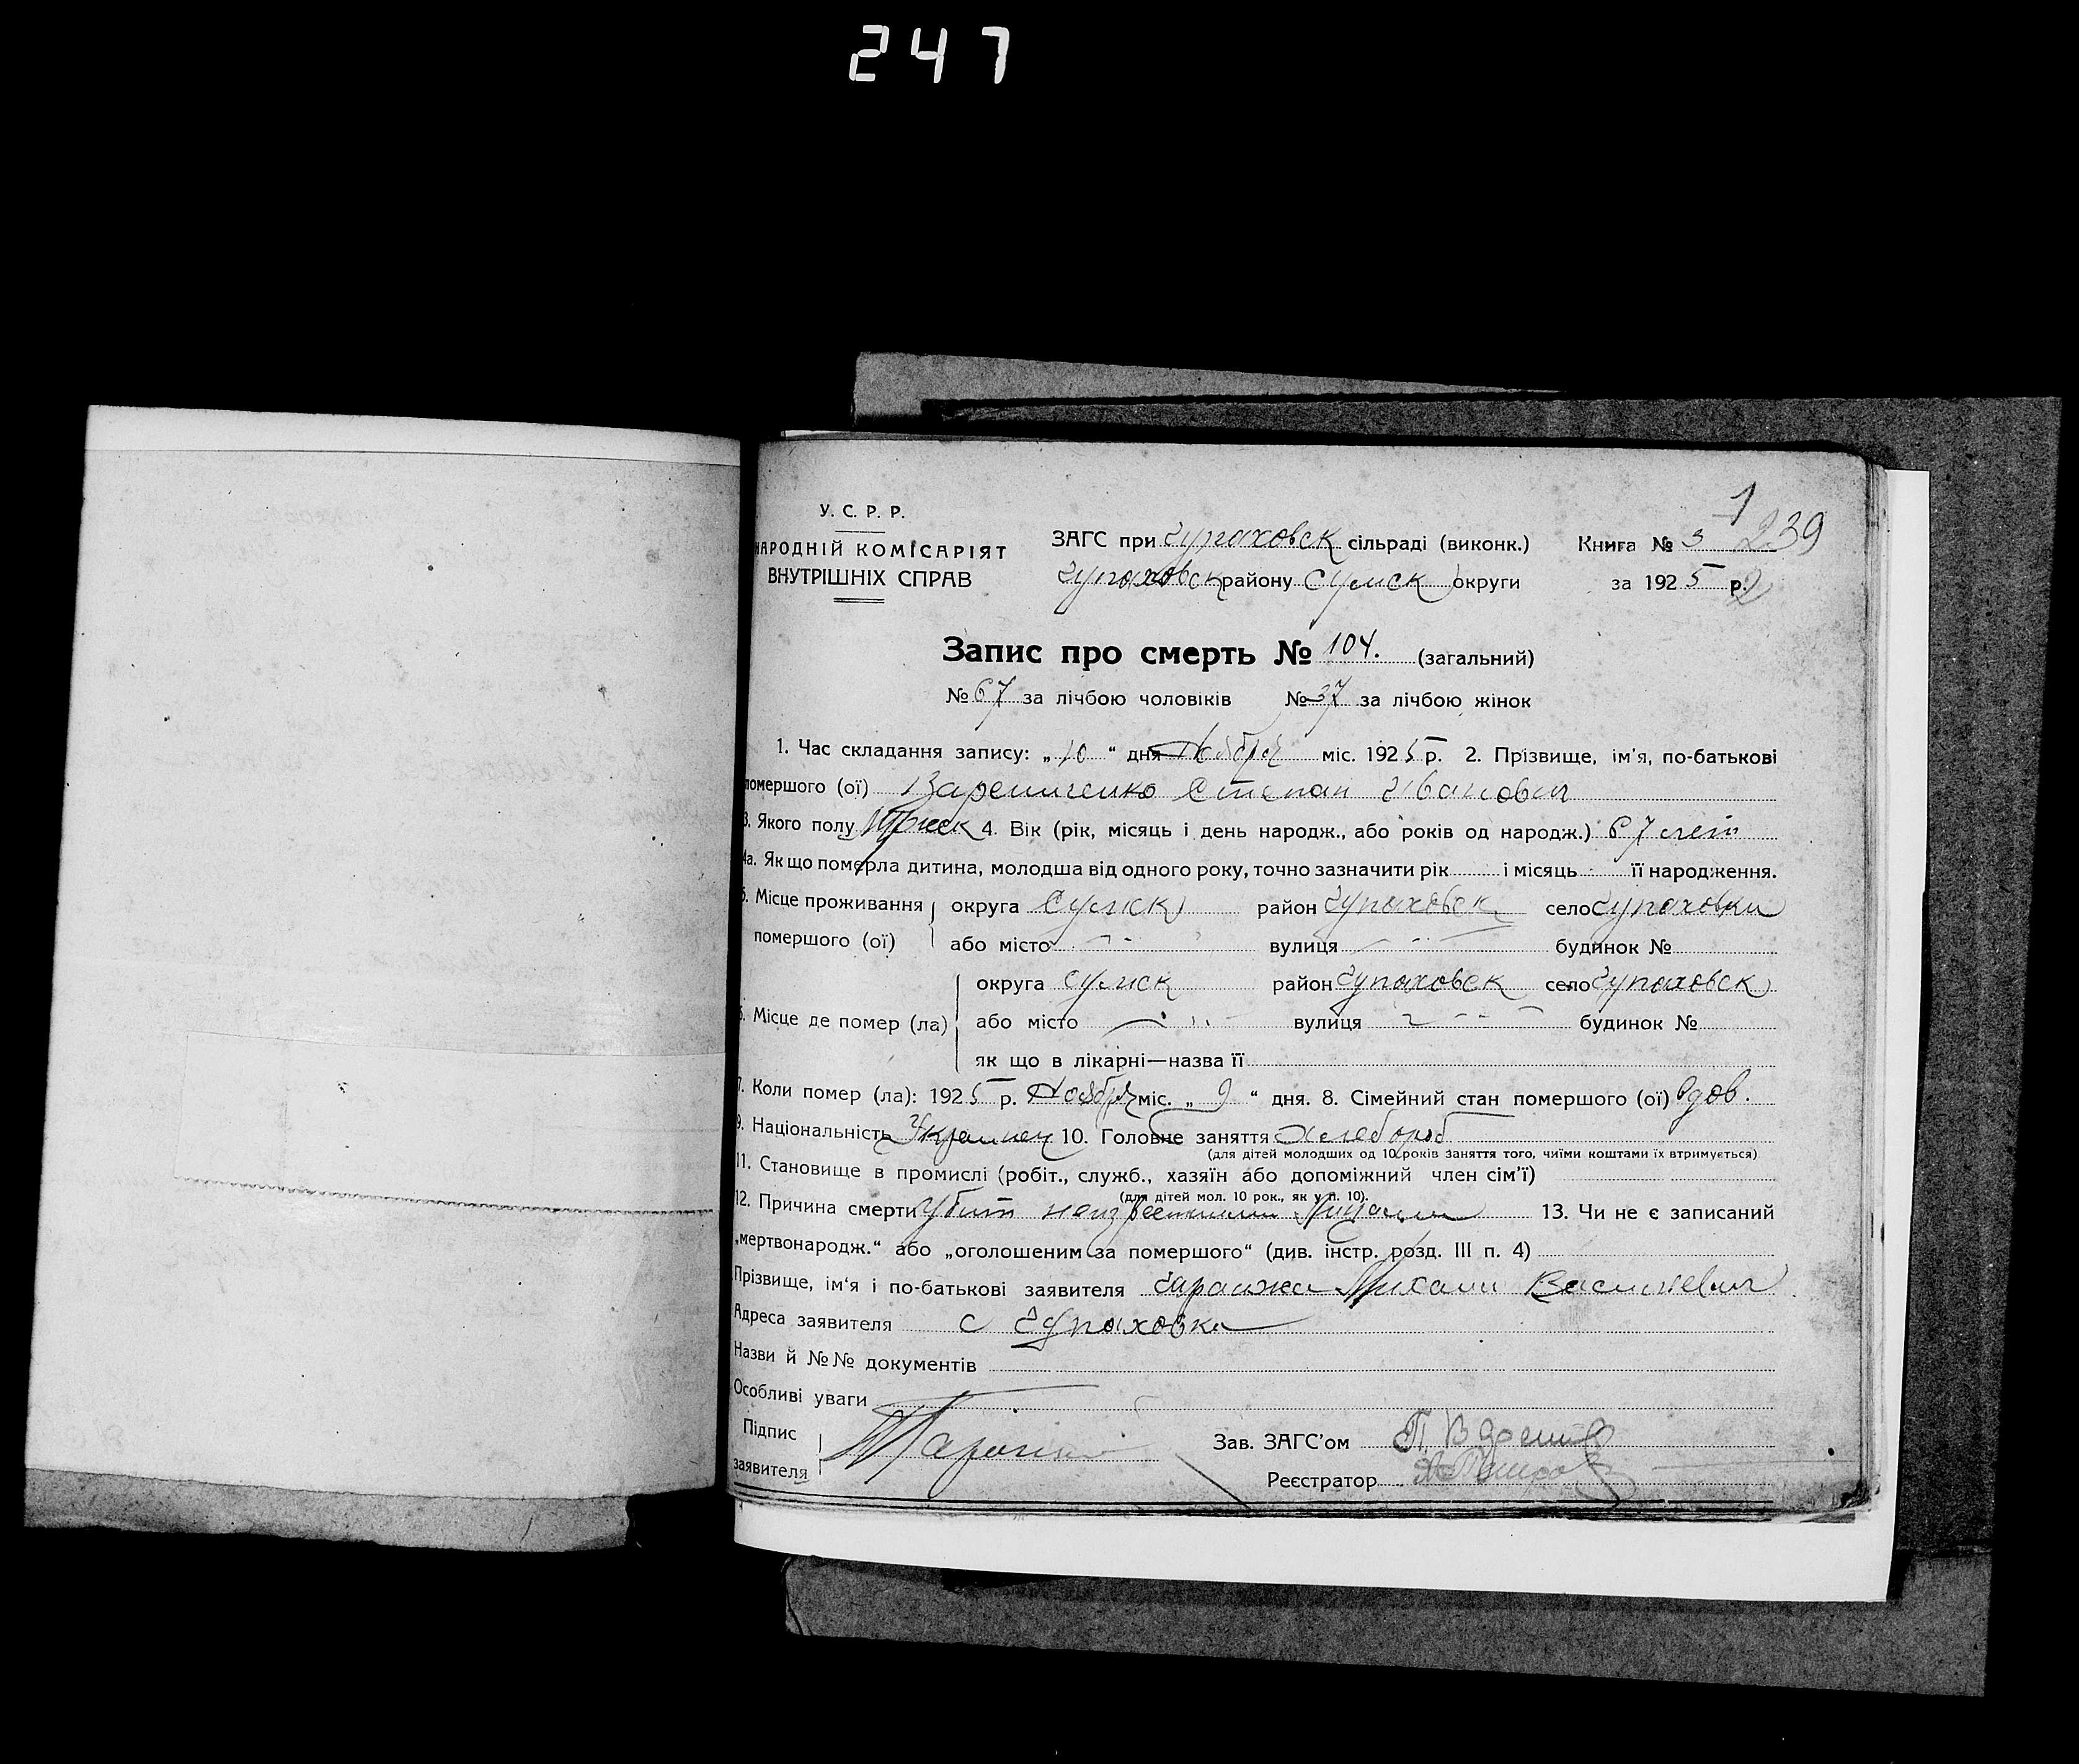 247
1
239
У. С. Р. Р.
НАРОДНІЙ КОМІСАРІЯТ
ВНУТРІШНІХ СПРАВ
ЗАГС при Чупаховск сільраді (виконк.) Книга № 3
Чупаховск району Сумск округи за 1925 р. 2
Запис про смерть № 104. (загальний)
№ 67 за лічбою чоловіків № 37 за лічбою жінок
1. Час складання запису: „ 10 “ дня Ноября міс. 1925 р. 2. Прізвище, ім'я, по-батькові
помершого (ої) Степан Иванович
3. Якого полу Мужск 4. Вік (рік, місяць і день народж., або років од народж.) 67 лет
4а. Як що померла дитина, молодша від одного року, точно зазначити рік і місяць її народження.
5. Місце проживання округа Сумск район Чупаховск село Чупаховки
помершого (ої) або місто вулиця будинок №
округа Сумск район Чупаховск село Чупаховск
6. Місце де помер (ла) або місто вулиця будинок №
як що в лікарні—назва її
7. Коли помер (ла): 1925 р. Ноября міс. „ 9 “ дня. 8. Сімейний стан помершого (ої) вдов.
9. Національність Украинец 10. Головне заняття Хлебороб
(для дітей молодших од 10 років заняття того, чиїми коштами їх втримується)
11. Становище в промислі (робіт., служб., хазяїн або допоміжний член сім'ї)
(для дітей мол. 10 рок., як у п. 10).
12. Причина смерти Убит неизвестними лицами 13. Чи не є записаний
„мертвонародж.“ або „оголошеним за помершого“ (див. інстр. розд. III п. 4)
Прізвище, ім'я і по-батькові заявителя Михаил Васильевич
Адреса заявителя с Чупаховка
Назви й №№ документів
Особливі уваги
Підпис
заявителя
Зав. ЗАГС'ом
Реєстратор